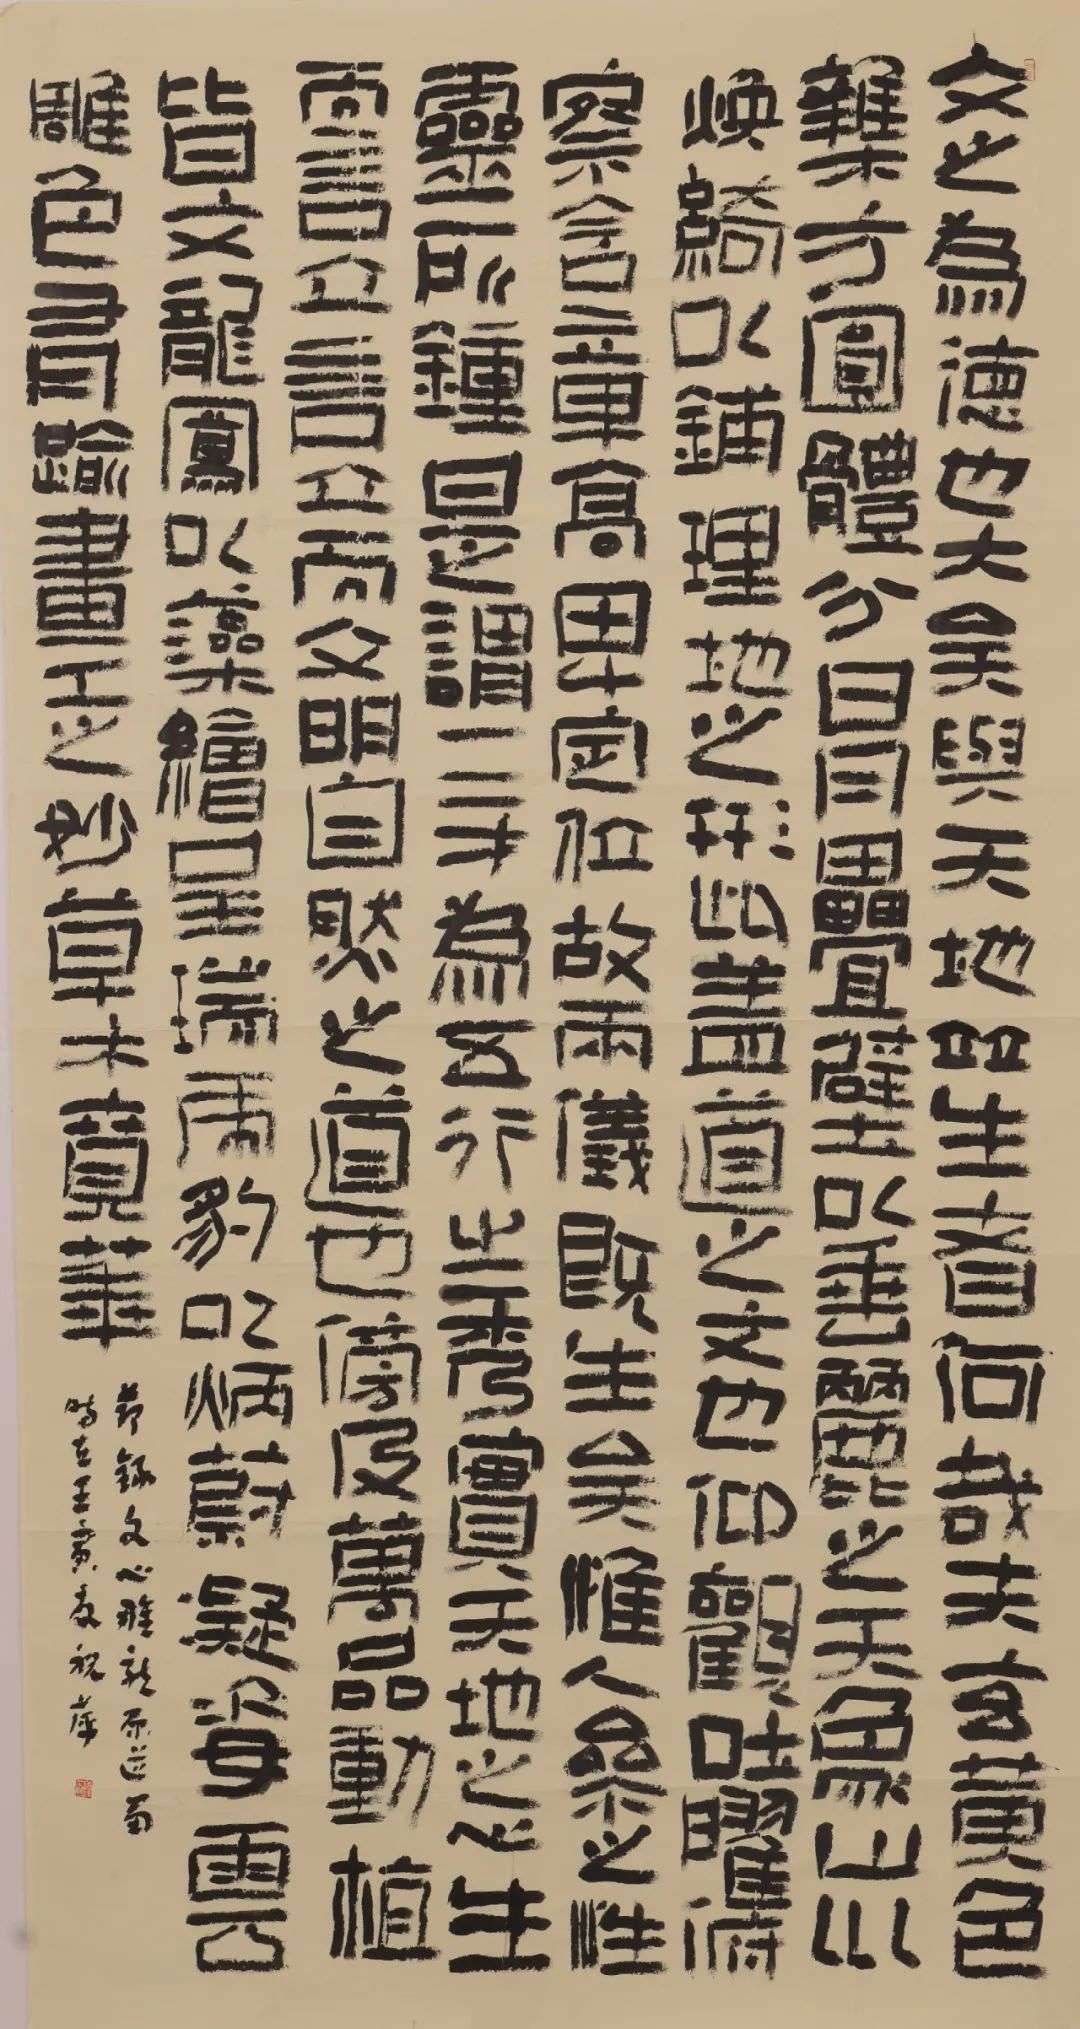 文之為德也大矣與天地並生者何哉夫玄黄色
雜方圓體分日月疊璧以垂麗之天象山川
煥綺以鋪理地之形此蓋道之文也仰觀吐曜俯
察含章高卑定位故兩儀既生矣惟人參之性
靈所鍾是謂三才為五行之秀實天地之心生
而言立言立而文明自然之道也傍及萬品動植
皆文龍鳳以藻繪呈瑞虎豹以炳蔚凝姿雲
雕色有踰畫工之妙草木賁華
節錄文心雕龍原道
時在壬寅春祝